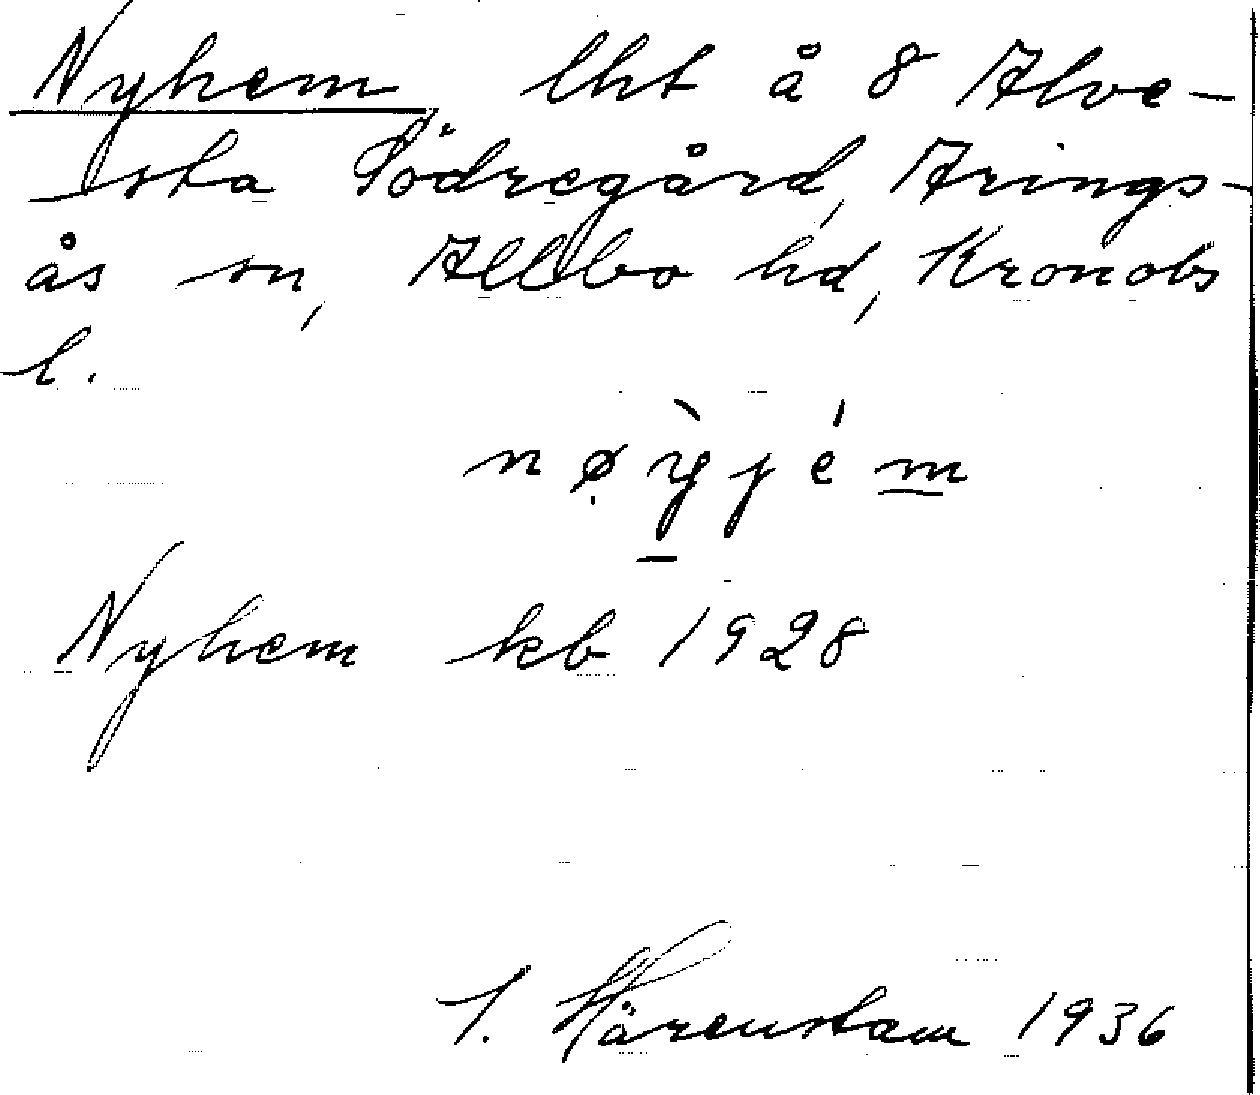 Nyhem, lht å 8 Alve-
sta Södregård, Arings-
ås sn, Allbo hd, Kronobs
l.
nøỳjém
Nyhem kb 1928
Härenstam 1936